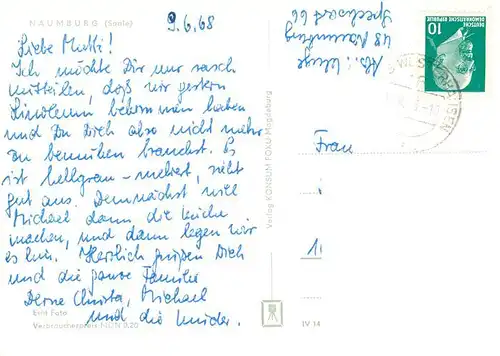 NAUMBURG (Saale)
9.6.68
Liebe Mutti!
Ich möchte Dir nur rasch
mitteilen, daß wir gestern
Linoleum bekommen haben
und Du Dich also nicht mehr
zu bemühen brauchst. Es
ist hellgrau-meliert, sieht
gut aus. Demnächst will
Michael dann die Küche
machen, und dann legen wir
es hin. Herzlich grüßen Dich
und die ganze Familie
Deine Christa, Michael
und die Kinder.
Echt Foto
Verbraucherpreis MDN 0,20
Verlag KONSUM FOKU Magdeburg
Abs.: Kluge
48 Naumburg
Spechsart 66
DEUTSCHE
DEMOKRATISCHE REPUBLIK
10
Frau
1
IV 14